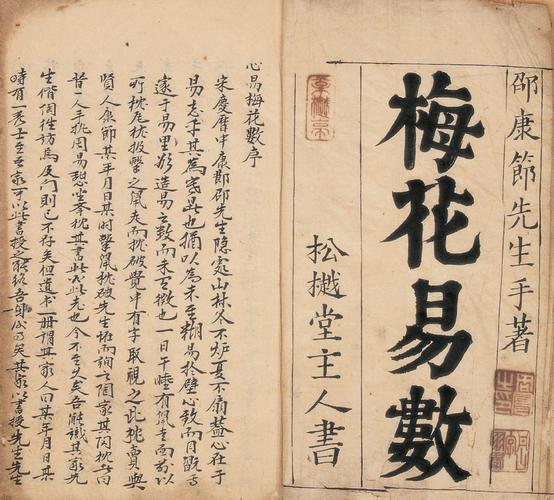 邵康節先生手著
梅花易數
松樾堂主人書
心易梅花數序
宋慶曆中康節邵先生隱處山林冬不爐夏不扇蓋心在于
易忘乎其為寒暑也猶以為未至糊易於壁心致而目翫焉
邃于易理欲造易之數而未有徵也一日午睡有鼠走而前以
所枕瓦枕投擊之鼠走而枕破覺中有字取視之此枕賣與
賢人康節某年月日某時擊鼠枕破先生怪而詢之陶家其陶枕者曰
昔一人手執周易憩坐举枕其書必此老也今不至久矣吾能識其家先
生偕陶往訪焉及門則已不存矣但遺書一册謂其家人曰某年月日某
時有一秀士至吾家可以此書授之能終吾身矣其家以書授先生先生